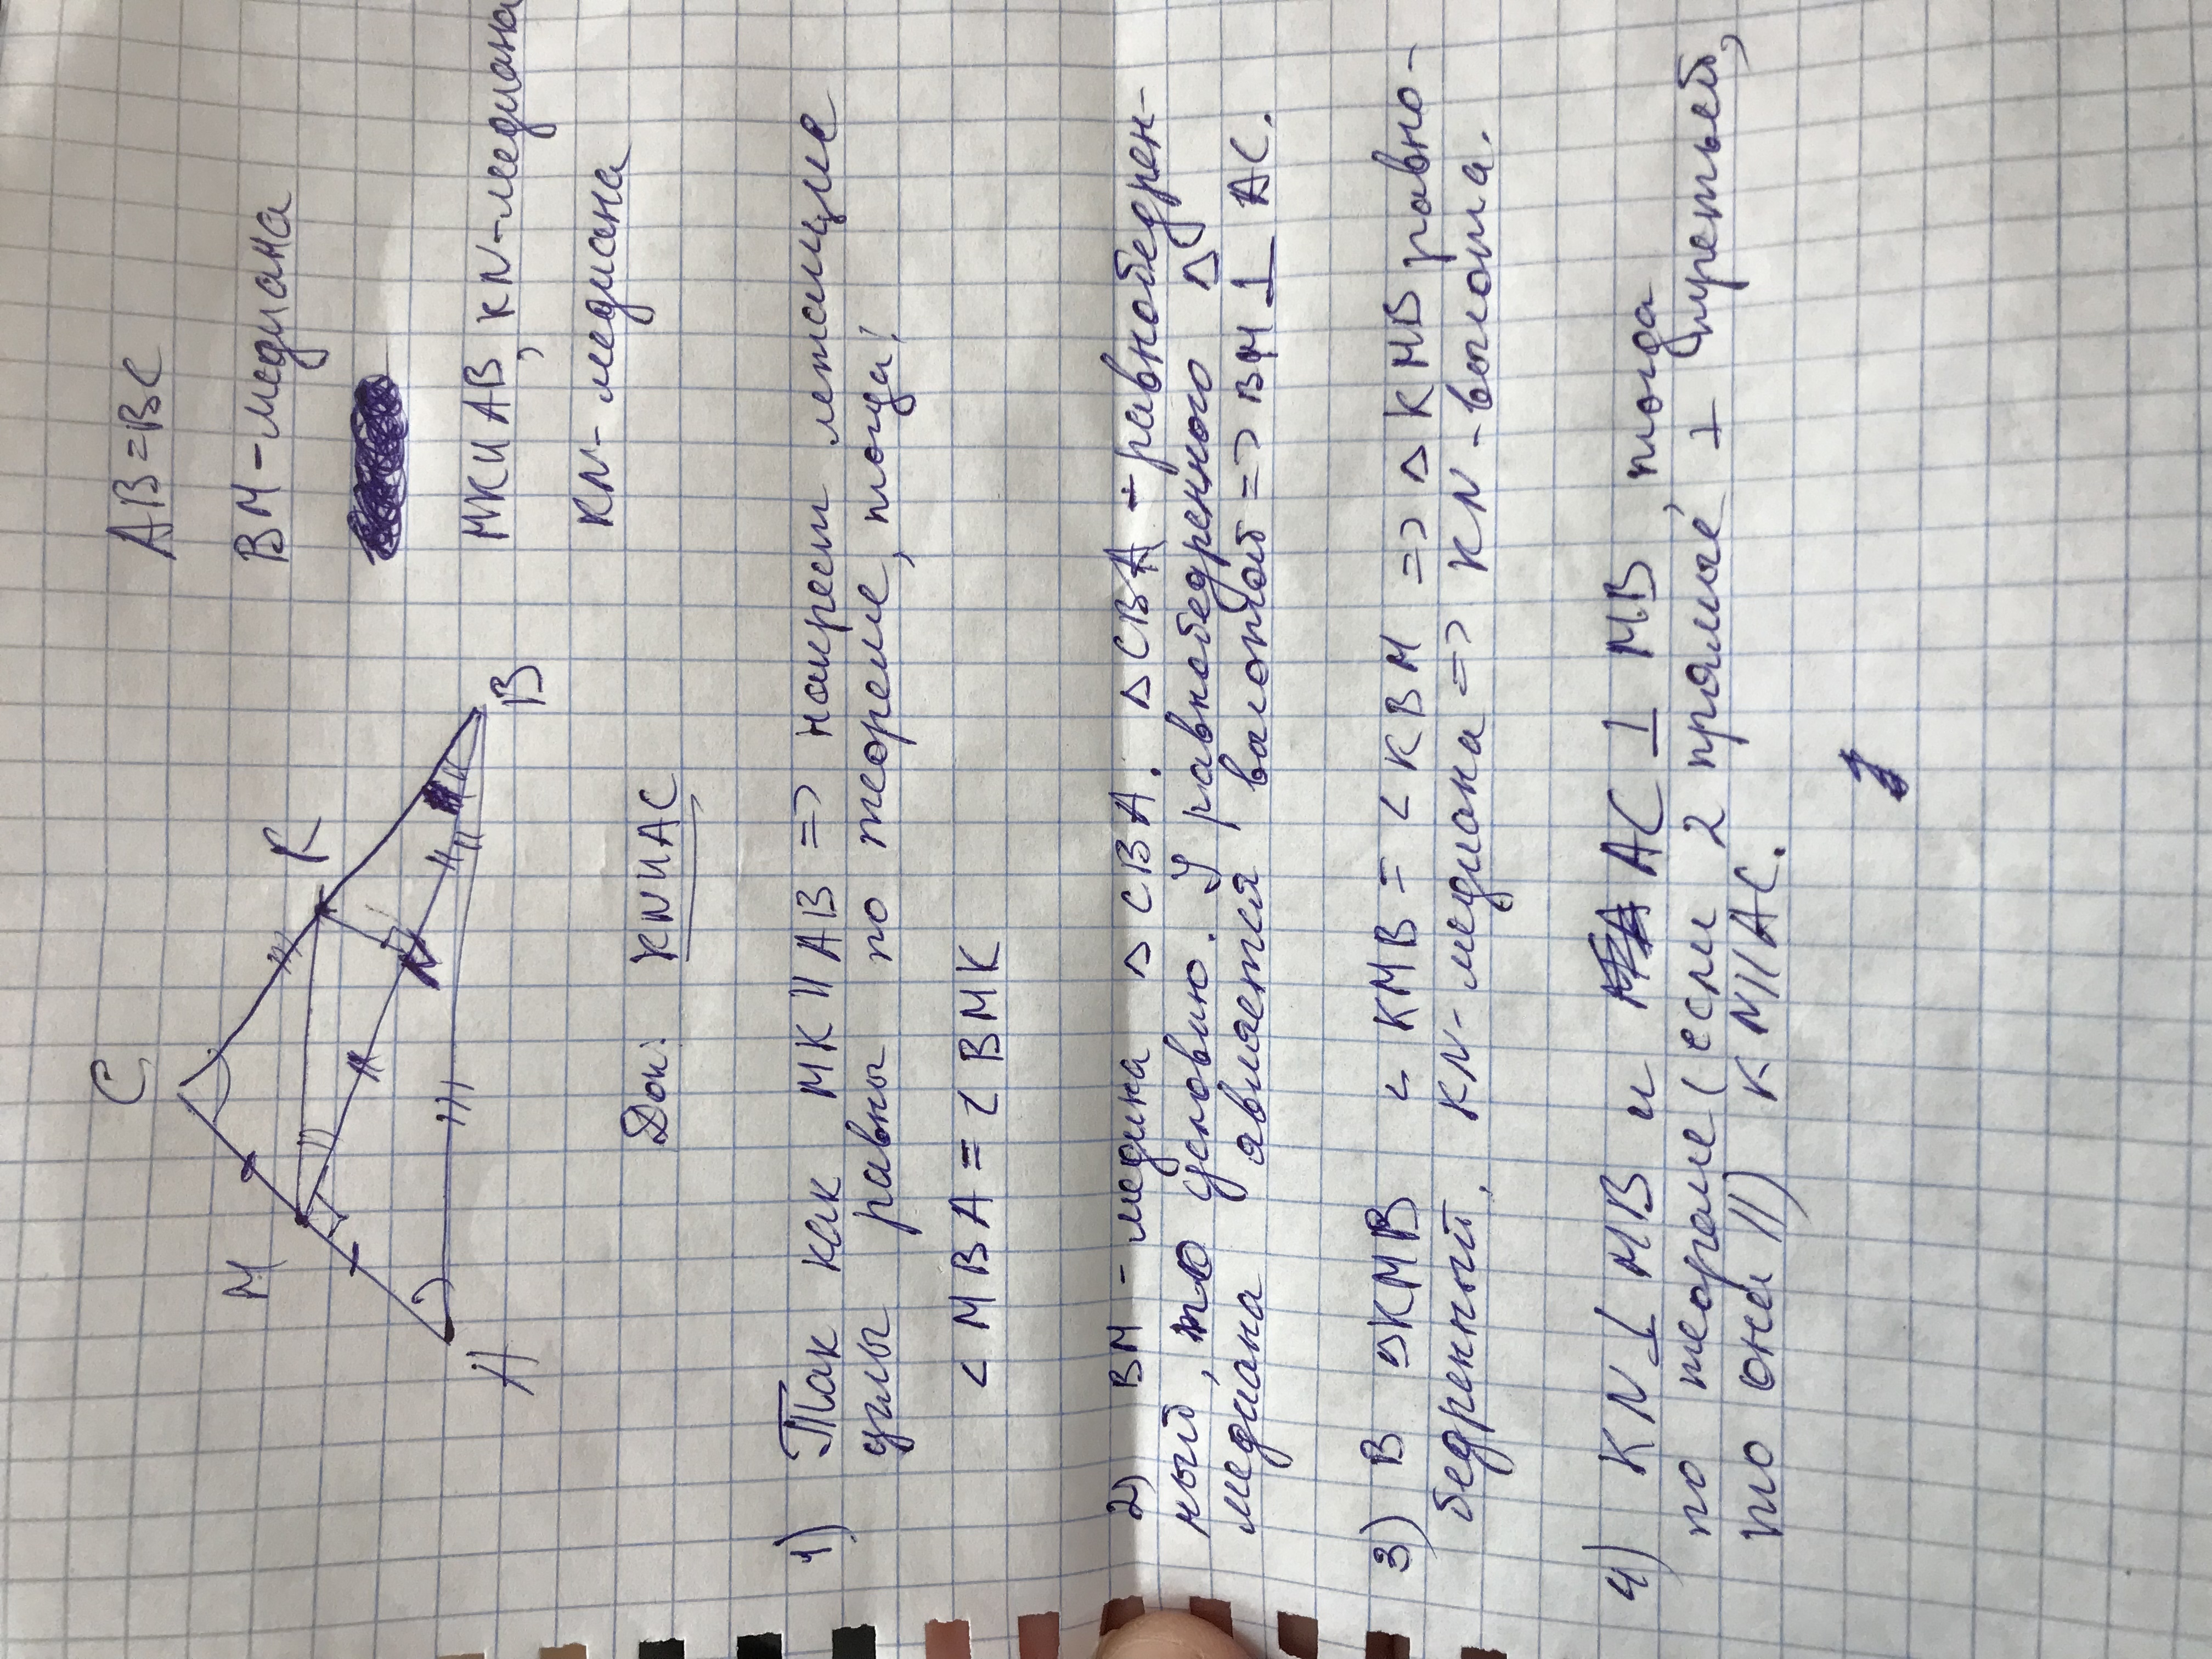 AB=BC
BM-медиана
MK॥AB, KN-медиана
KN-медиана
C
K
M
N
B
A
Док: KN॥AC
1) Так как MK॥AB => накрест лежащие
углы равны по теореме, тогда!
< MBA = < BMK
2) BM - медина △CBA. △CBA - равнобедрен-
ный, то условию. У равнобедренного △
медиана является высотой => BM ⊥ AC.
3) В △KMB < KMB = < KBM => △KMB равно-
бедренный. KN-медиана => KN-высота.
4) KN ⊥ MB и AC ⊥ MB, тогда
по теореме (если 2 прямые ⊥ третьей,
то они ॥) KN॥AC.